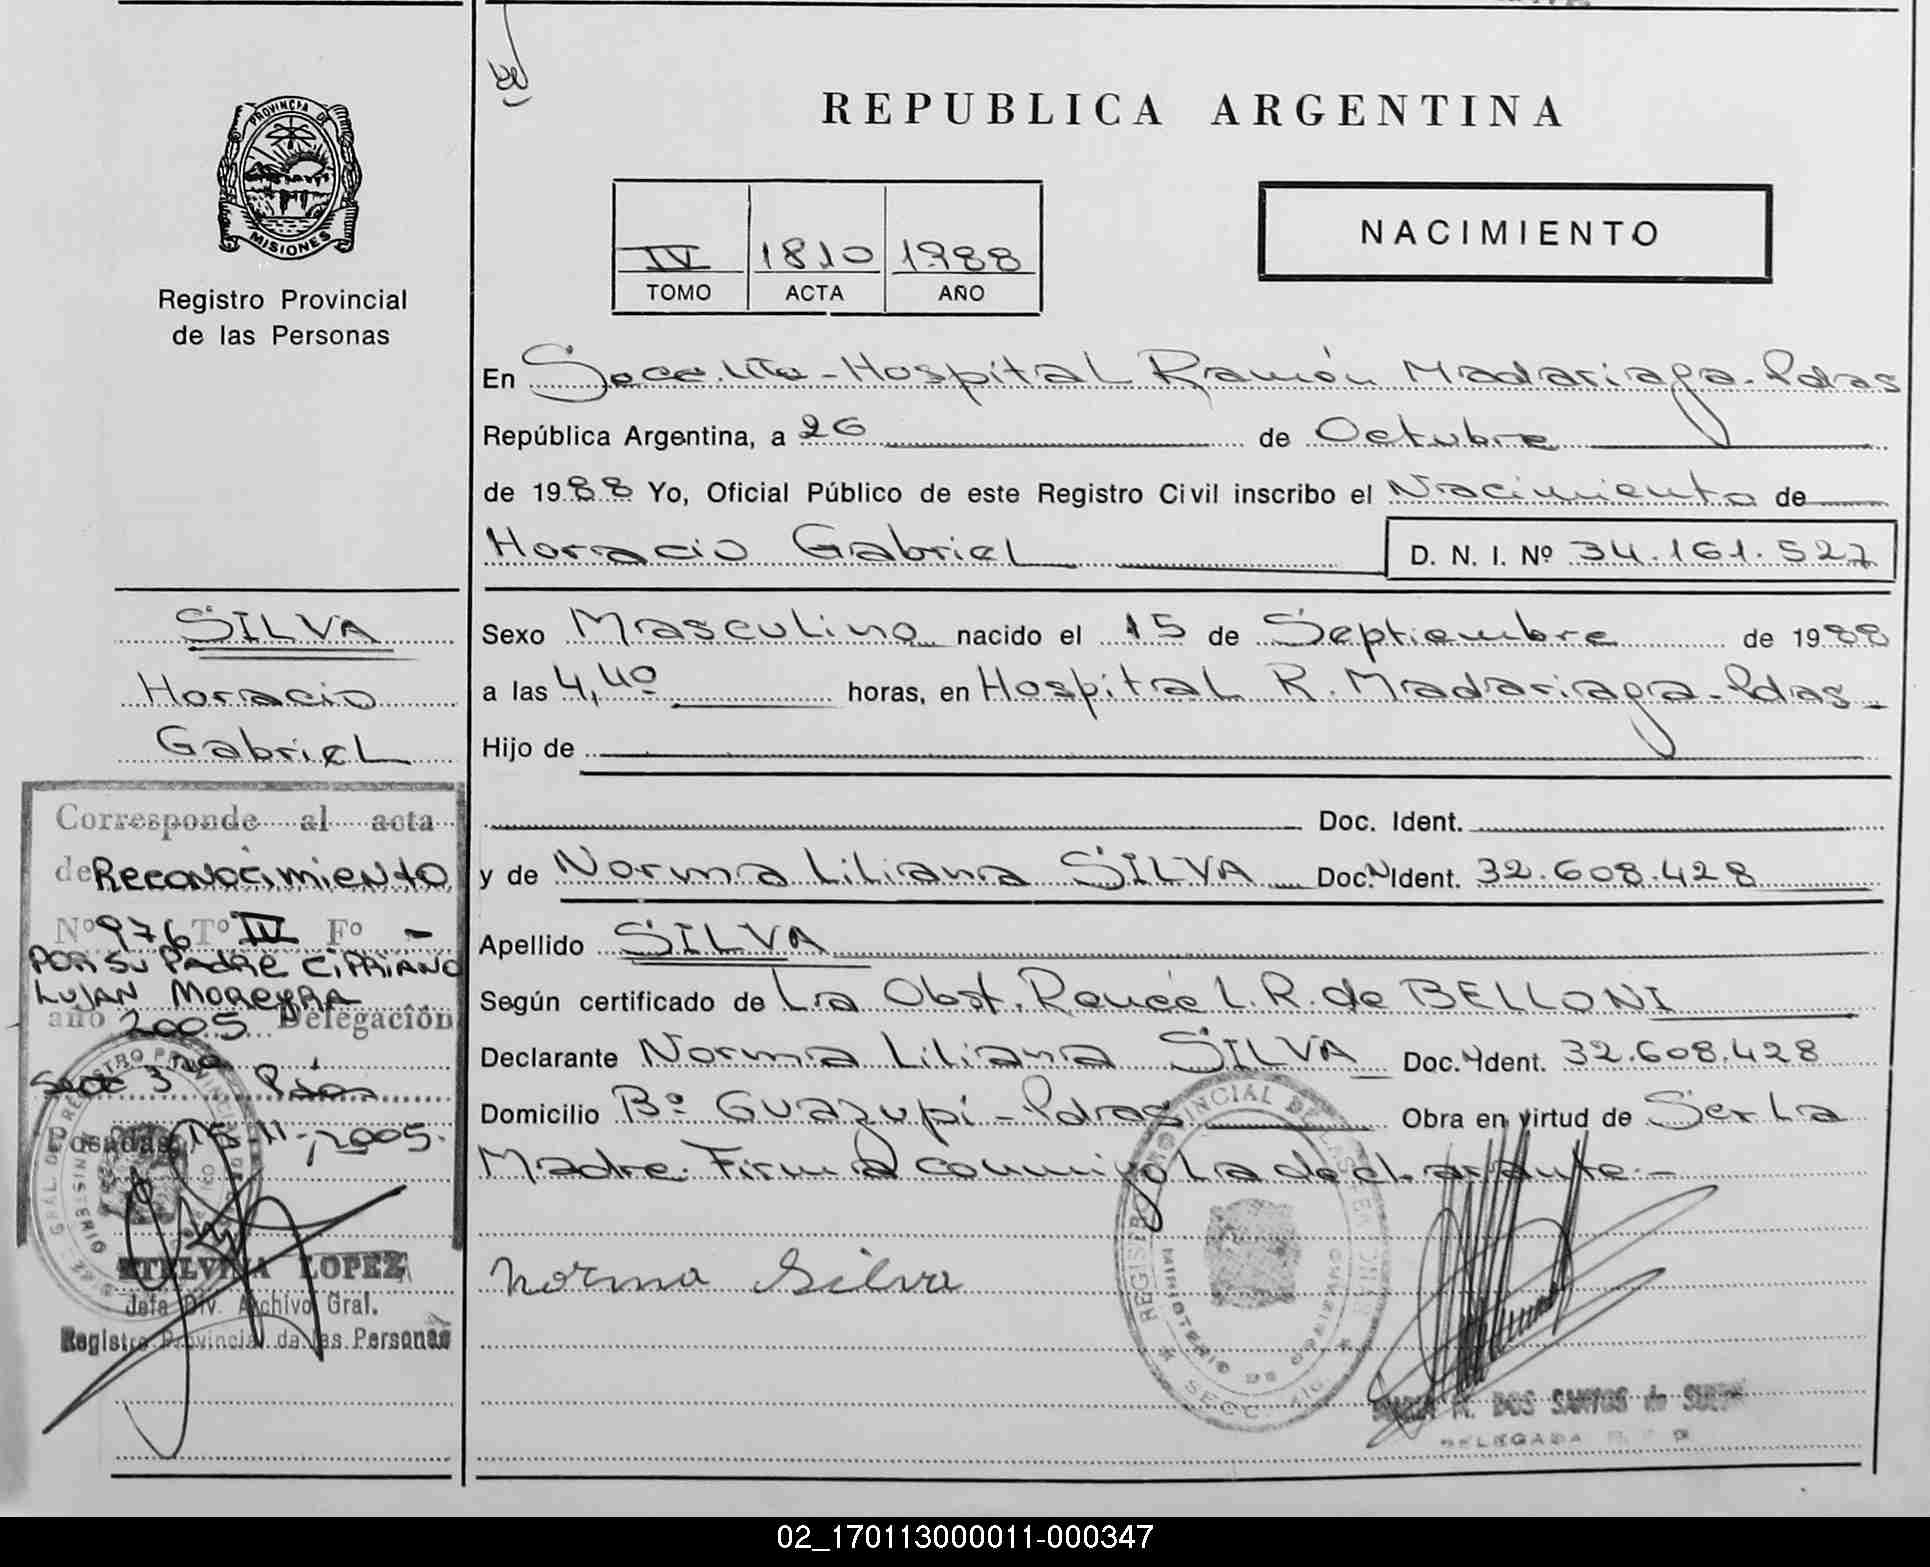 PROVINCIA DE
MISIONES
Registro Provincial
de las Personas
REPUBLICA ARGENTINA
IV 1810 1988
TOMO ACTA AÑO
NACIMIENTO
En Secc. Hospital Ramón Madariaga - Pdas
República Argentina, a 26 de Octubre
de 1988 Yo, Oficial Público de este Registro Civil inscribo el Nacimiento de
Horacio Gabriel D. N. I. Nº 34.161.527
Sexo Masculino nacido el 15 de Septiembre de 1988
a las 4,40 horas, en Hospital R. Madariaga - Pdas -
Hijo de
Doc. Ident.
y de Norma Liliana SILVA Doc. Ident. 32.608.428
Apellido SILVA
Según certificado de La Obst. Reneé L. R. de BELLONI
Declarante Norma Liliana SILVA Doc. Ident. 32.608.428
Domicilio Bº Guazupi - Pdas Obra en virtud de Ser La
Madre. Firma conmigo La declarante. -
Norma Silva
DOS SANTOS de
DELEGADA
SILVA
Horacio
Gabriel
Corresponde al acta
de Reconocimiento
Nº 976 Tº IV Fº -
POR SU PADRE CIPRIANO
LUJAN MOREYRA
año 2005 Delegación
Secc 3ra Pdas
Posadas, 15-11-2005.
LOPEZ
Jefa Div. Archivo Gral.
Registro Provincial de las Personas
02_170113000011-000347